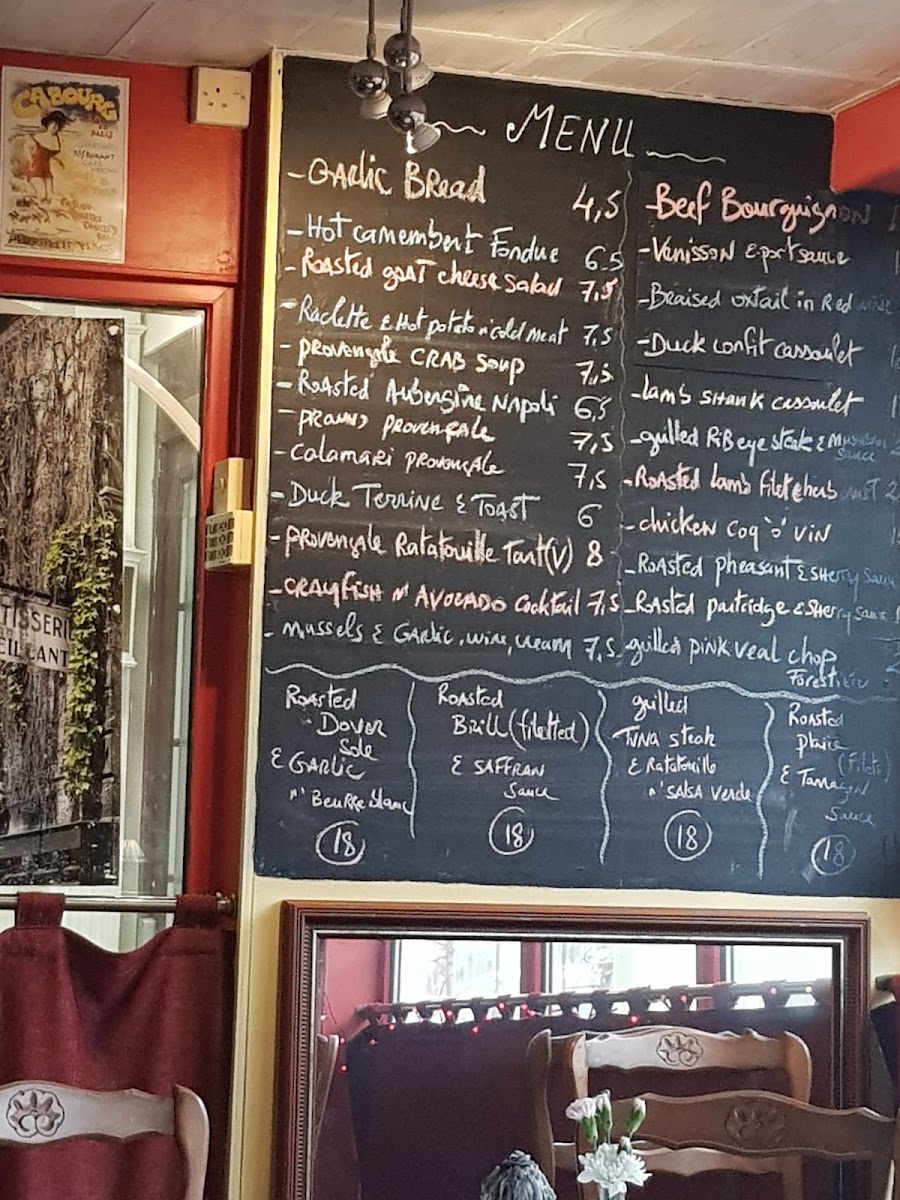 CABOURG
MENU
-GARLIC BREAD 4,5
-Hot camembert Fondue 6.5
-Roasted goat cheese salad 7,5
-Raclette & Hot potato n' cold meat 7,5
-PROVENÇALE CRAB SOUP 7,5
-Roasted Aubergine Napoli 6,5
-PRAWNS PROVENÇALE 7,5
-Calamari PROVENÇALE 7,5
-Duck Terrine & Toast 6
-PROVENÇALE Ratatouille Tart(V) 8
-CRAYFISH N' AVOCADO Cocktail 7,5
-Mussels & Garlic, wine, cream 7,5
-Beef Bourguignon
-Venisson & port sauce
-Braised oxtail in Red wine
-Duck confit cassoulet
-lamb SHANK cassoulet
-grilled Rib eye steak & Mushroom
sauce
-Roasted lamb filet & herb
-chicken coq 'o' vin
-Roasted pheasant & Sherry sauce
-Roasted partridge & Sherry sauce
-grilled pink veal chop
Forestière
Roasted
Dover
Sole
& GARLIC
n' Beurre blanc
18
Roasted
Brill (filetted)
& SAFFRAN
Sauce
18
grilled
Tuna steak
& Ratatouille
n' SALSA Verde
18
Roasted
plaice
(filets)
& Tarragon
Sauce
18
TISSERIE